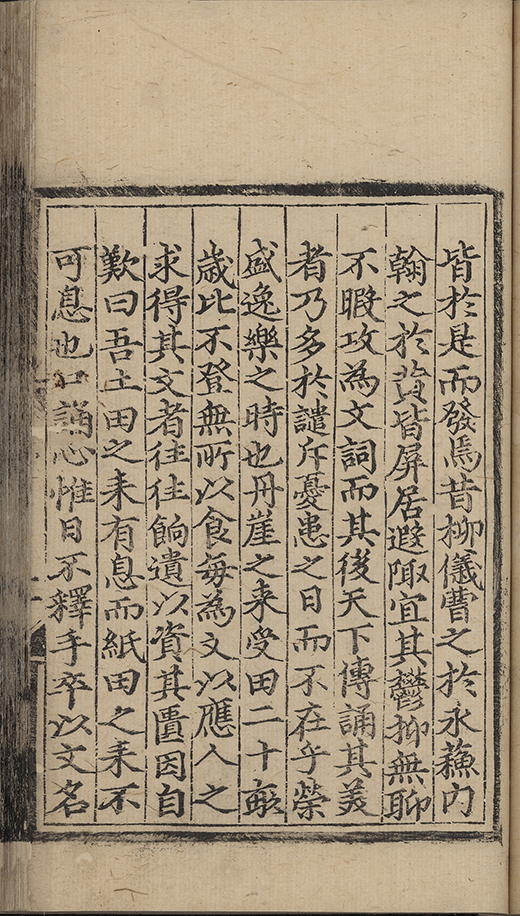 皆於是而發焉昔柳儀曹之於永蘓內
翰之於黄皆屏居遐陬宜其鬱抑無聊
不暇攻為文詞而其後天下傳誦其美
者乃多於譴斥憂患之日而不在乎榮
盛逸樂之時也丹崖之来受田二十畝
歲比不登無所以食每為文以應人之
求得其文者往往餉遺以資其匱因自
歎曰吾土田之耒有息而紙田之耒不
可息也口誦心惟日不釋手卒以文名